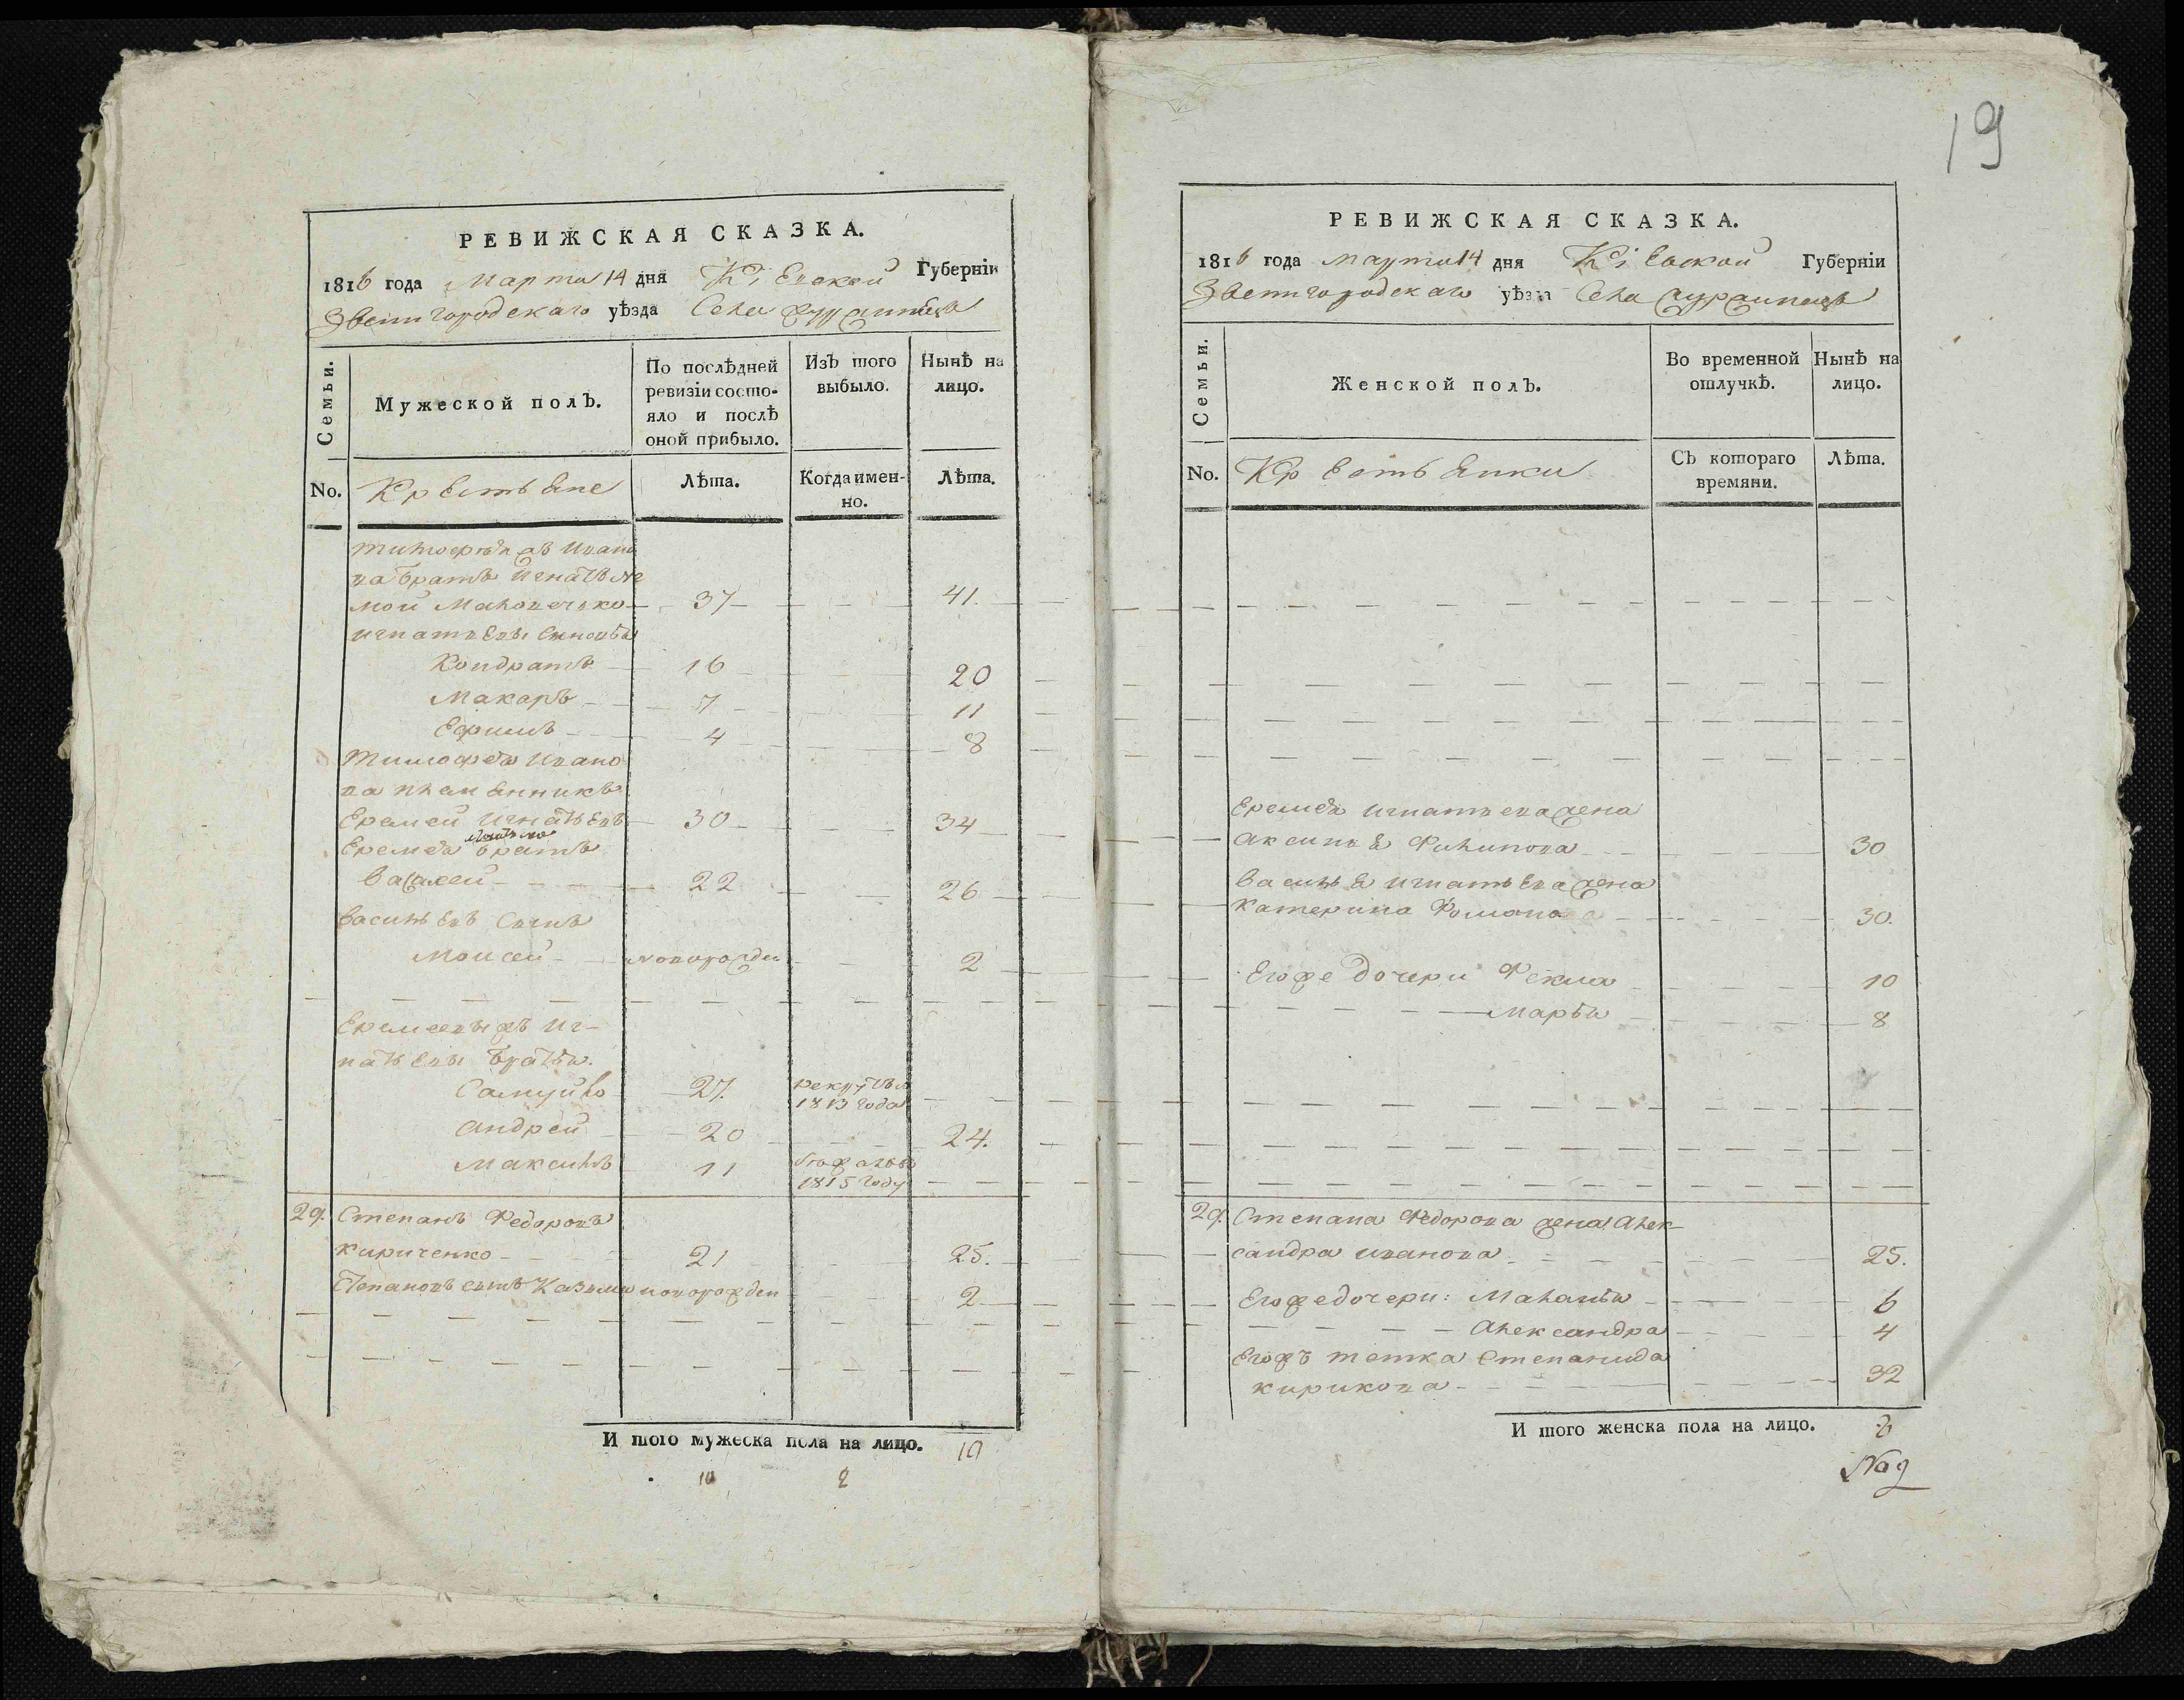 19
РЕВИЖСКАЯ СКАЗКА.
1816 года Марта 14 дня Кіевской Губерніи
Звенигородскаго уѣзда Села
Семьи.
Мужеской полъ.
По послѣдней ревизіи состояло и послѣ оной прибыло.
Изъ того выбыло.
Нынѣ на лицо.
No. Крестьяне
Лѣта.
Когда именно.
Лѣта.
Тимофея жъ Ивано
ва братъ Игнатъ
мой 37 41.
Игнатьевы сыновья
Кондратъ 16 20
Макаръ 7 11
Ефимъ 4 8
Тимофея Ивано
ва племянникъ
Еремей Игнатьевъ 30 34
Еремея братъ
Василей 22 26
Васильевъ сынъ
Моисей новорожден 2
Еремеевы жъ Иг-
натьевы братья.
Самуйло 27. рекрутъ
1813 года
Андрей 20 24.
Максимъ 11
1815 году
29. Степанъ Федоровъ
Кириченко 21 25.
Степановъ сынъ Казьма новорожден 2
И того мужеска пола на лицо. 10
10 2
РЕВИЖСКАЯ СКАЗКА.
1816 года Марта 14 дня Кіевской Губерніи
Звенигородскаго уѣзда Села
Семьи.
Женской полъ.
Во временной отлучкѣ.
Нынѣ на лицо.
No. Крестьянки
Съ котораго времяни.
Лѣта.
Еремея Игнатьева жена
Аксинья Филипова 30
Василья Игнатьева жена
Катерина Романова 30.
Егоже дочери Фекла 10
Марья 8
29. Степана Федорова жена Алек-
сандра Иванова 25.
Егоже дочери: Маланья 6
Александра 4
Егожъ тетка Степанида
Кирикова 32
И того женска пола на лицо. 8